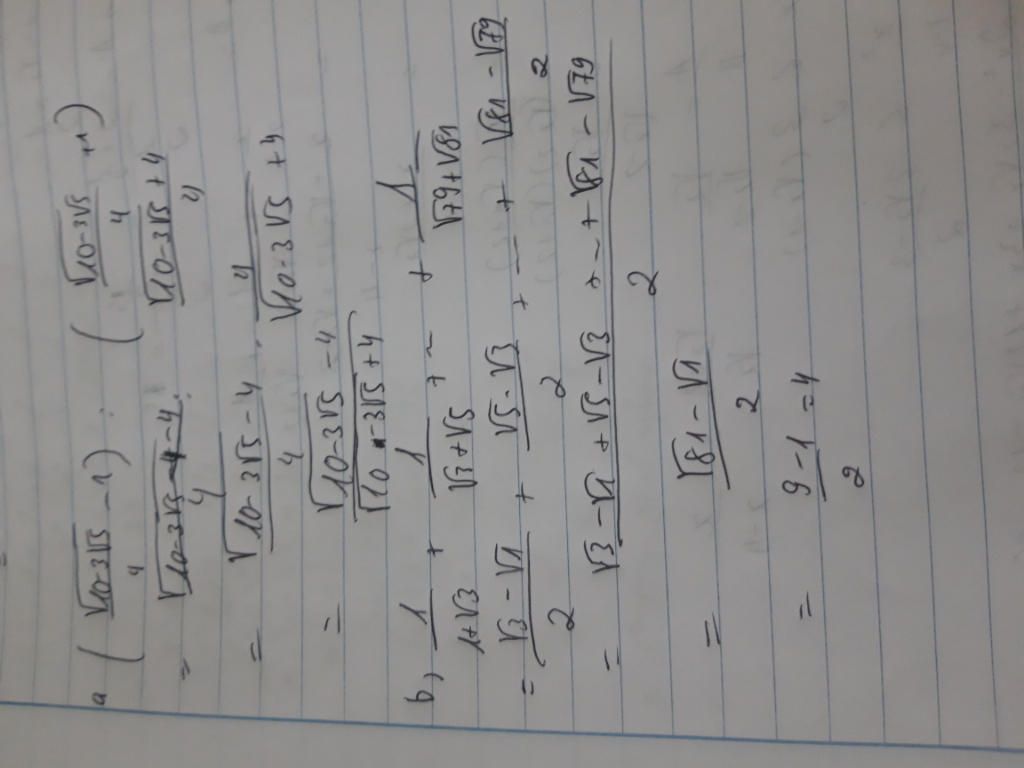 a (√10-3√5/4 - 1) : (√10-3√5/4 + 1)
= √10-3√5-4/4 : √10-3√5+4/4
= √10-3√5-4/4 . 4/√10-3√5+4
= √10-3√5-4/√10-3√5+4
b, 1/1+√3 + 1/√3+√5 + ~ + 1/√79+√81
= √3-√1/2 + √5-√3/2 + -- + √81-√79/2
= √3-√1+√5-√3+~+√81-√79/2
= √81-√1/2
= 9-1/2 = 4